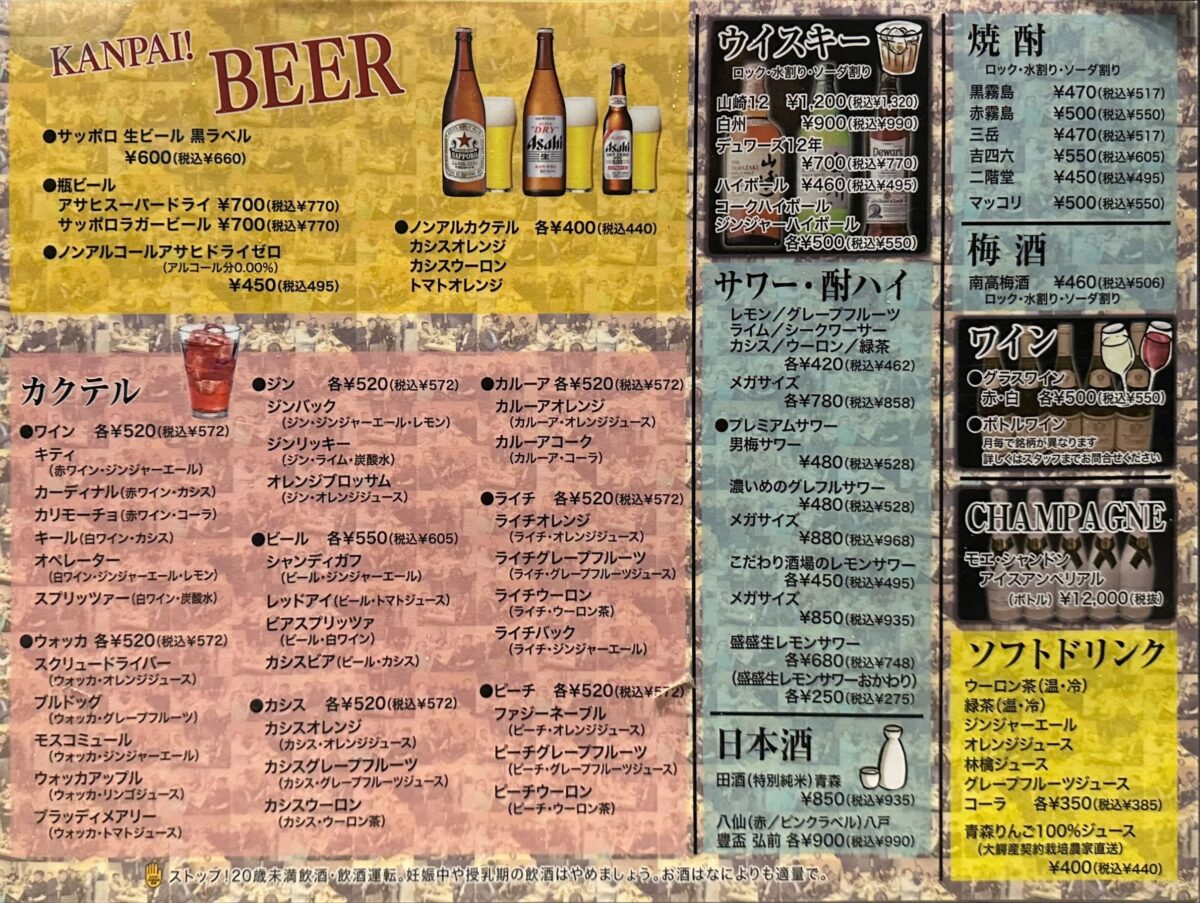 KANPAI!
BEER
●サッポロ 生ビール 黒ラベル
¥600(税込¥660)
●瓶ビール
アサヒスーパードライ ¥700(税込¥770)
サッポロラガービール ¥700(税込¥770)
●ノンアルコールアサヒドライゼロ
(アルコール分0.00%)
¥450(税込495)
●ノンアルカクテル 各¥400(税込440)
カシスオレンジ
カシスウーロン
トマトオレンジ
SAPPORO
"DRY"
Asahi
生
Asahi
カクテル
●ワイン 各¥520(税込¥572)
キティ
(赤ワイン・ジンジャーエール)
カーディナル(赤ワイン・カシス)
カリモーチョ(赤ワイン・コーラ)
キール(白ワイン・カシス)
オペレーター
(白ワイン・ジンジャーエール・レモン)
スプリッツァー(白ワイン・炭酸水)
●ウォッカ 各¥520(税込¥572)
スクリュードライバー
(ウォッカ・オレンジジュース)
ブルドッグ
(ウォッカ・グレープフルーツ)
モスコミュール
(ウォッカ・ジンジャーエール)
ウォッカアップル
(ウォッカ・リンゴジュース)
ブラッディメアリー
(ウォッカ・トマトジュース)
●ジン 各¥520(税込¥572)
ジンバック
(ジン・ジンジャーエール・レモン)
ジンリッキー
(ジン・ライム・炭酸水)
オレンジブロッサム
(ジン・オレンジジュース)
●ビール 各¥550(税込¥605)
シャンディガフ
(ビール・ジンジャーエール)
レッドアイ(ビール・トマトジュース)
ビアスプリッツァ
(ビール・白ワイン)
カシスビア(ビール・カシス)
●カシス 各¥520(税込¥572)
カシスオレンジ
(カシス・オレンジジュース)
カシスグレープフルーツ
(カシス・グレープフルーツジュース)
カシスウーロン
(カシス・ウーロン茶)
●カルーア 各¥520(税込¥572)
カルーアオレンジ
(カルーア・オレンジジュース)
カルーアコーク
(カルーア・コーラ)
●ライチ 各¥520(税込¥572)
ライチオレンジ
(ライチ・オレンジジュース)
ライチグレープフルーツ
(ライチ・グレープフルーツジュース)
ライチウーロン
(ライチ・ウーロン茶)
ライチバック
(ライチ・ジンジャーエール)
●ピーチ 各¥520(税込¥572)
ファジーネーブル
(ピーチ・オレンジジュース)
ピーチグレープフルーツ
(ピーチ・グレープフルーツジュース)
ピーチウーロン
(ピーチ・ウーロン茶)
ウイスキー
ロック・水割り・ソーダ割り
山崎12 ¥1,200(税込¥1,320)
白州 ¥900(税込¥990)
デュワーズ12年
¥700(税込¥770)
ハイボール ¥460(税込¥495)
コークハイボール
ジンジャーハイボール
各¥500(税込¥550)
THE YAMAZAKI
山崎
Dewar's
サワー・酎ハイ
レモン/グレープフルーツ
ライム/シークワーサー
カシス/ウーロン/緑茶
各¥420(税込¥462)
メガサイズ
各¥780(税込¥858)
●プレミアムサワー
男梅サワー
¥480(税込¥528)
濃いめのグレフルサワー
¥480(税込¥528)
メガサイズ
¥880(税込¥968)
こだわり酒場のレモンサワー
各¥450(税込¥495)
メガサイズ
¥850(税込¥935)
盛盛生レモンサワー
各¥680(税込¥748)
(盛盛生レモンサワーおかわり)
各¥250(税込¥275)
日本酒
田酒(特別純米)青森
¥850(税込¥935)
八仙(赤/ピンクラベル)八戸
豊盃 弘前 各¥900(税込¥990)
焼酎
ロック・水割り・ソーダ割り
黒霧島 ¥470(税込¥517)
赤霧島 ¥500(税込¥550)
三岳 ¥470(税込¥517)
吉四六 ¥550(税込¥605)
二階堂 ¥450(税込¥495)
マッコリ ¥500(税込¥550)
梅酒
南高梅酒 ¥460(税込¥506)
ロック・水割り・ソーダ割り
ワイン
●グラスワイン
赤・白 各¥500(税込¥550)
●ボトルワイン
月毎で銘柄が異なります
詳しくはスタッフまでお問合せください
CHAMPAGNE
モエ・シャンドン
アイスアンペリアル
(ボトル) ¥12,000(税抜)
ソフトドリンク
ウーロン茶(温・冷)
緑茶(温・冷)
ジンジャーエール
オレンジジュース
林檎ジュース
グレープフルーツジュース
コーラ 各¥350(税込¥385)
青森りんご100%ジュース
(大鰐産契約栽培農家直送)
¥400(税込¥440)
ストップ!20歳未満飲酒・飲酒運転。妊娠中や授乳期の飲酒はやめましょう。お酒はなによりも適量で。